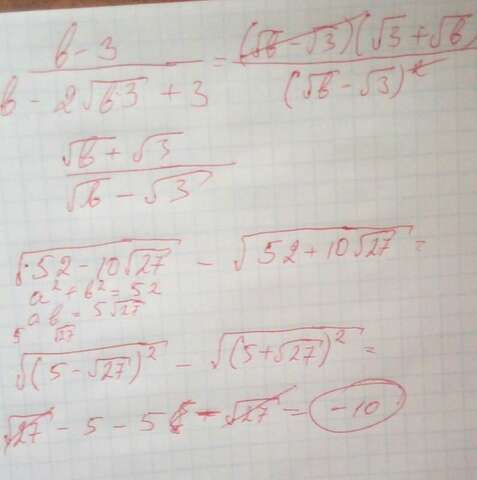 b - 3 / b - 2√b·3 + 3 = (√b - √3)(√3 + √b) / (√b - √3)²
√b + √3 / √b - √3
√52 - 10√27 - √52 + 10√27 =
a² + b² = 52
ab = 5√27
5 √27
√(5 - √27)² - √(5 + √27)² =
√27 - 5 - 5 - √27 = -10